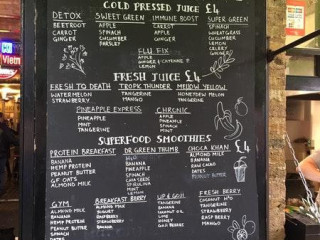 COLD PRESSED JUICE £4
DETOX
BEETROOT
CARROT
GINGER
SWEET GREEN
APPLE
SPINACH
CUCUMBER
PARSLEY
IMMUNE BOOST
CARROT
APPLE
GINGER
SUPER GREEN
SPINACH
WHEATGRASS
CUCUMBER
LEMON
CELERY
GINGER
FLU FIX
APPLE
GINGER + CAYENNE
LEMON
FRESH JUICE £4
FRESH TO DEATH
WATERMELON
STRAWBERRY
TROPIK THUNDER
TANGERINE
MANGO
MELLOW YELLOW
HONEYDEW MELON
TANGERINE
PINEAPPLE EXPRESS
PINEAPPLE
MINT
TANGERINE
CHRONIC
APPLE
PINEAPPLE
SPINACH
MINT
SUPERFOOD SMOOTHIES
PROTEIN BREAKFAST
BANANA
HEMP PROTEIN
PEANUT BUTTER
GF OATS
ALMOND MILK
DR GREEN THUMB
H2O
BANANA
PINEAPPLE
SPINACH
CHIA SEEDS
SPIRULINA
MINT
LEMON
CHOCA KHAN £4
ALMOND MILK
BANANA
RAW CACAO
DATES
PEANUT BUTTER
GYM
ALMOND MILK
BANANA
HEMP PROTEIN
PEANUT BUTTER
SPINACH
DATES
BREAKFAST BERRY
ALMOND MILK
YOGURT
RASPBERRY
STRAWBERRY
BANANA
UP & GOJI
TANGERINE
BANANA
COCONUT OIL
LIME
HONEY
GOJI BERRIES
FRESH BERRY
COCONUT H2O
TANGERINE
STRAWBERRY
RASPBERRY
MANGO